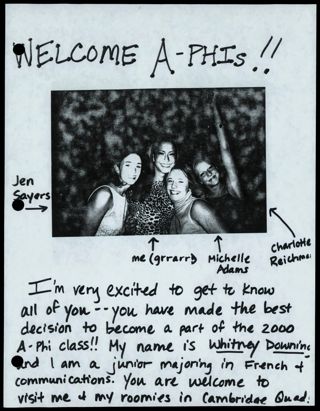 WELCOME A-PHIs!!
Jen
Sayers
me (grrarr!)
Michelle
Adams
Charlotte
Reichma
I'm very excited to get to know
all of you -- you have made the best
decision to become a part of the 2000
A-Phi class!! My name is Whitney Downing
and I am a junior majoring in French &
communications. You are welcome to
visit me & my roomies in Cambridge Quad.